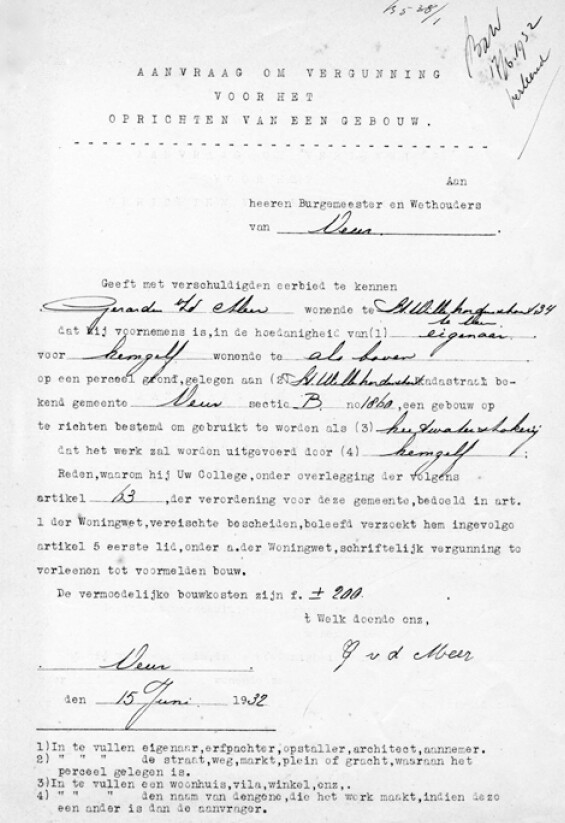 B 5 28/1
B&W
17/6.1932
verleend
AANVRAAG OM VERGUNNING
VOOR HET
OPRICHTEN VAN EEN GEBOUW.
Aan
heeren Burgemeester en Wethouders
van Veur.
Geeft met verschuldigden eerbied te kennen
Gerardus v/d Meer wonende te St. Willibrordusstraat 34
te Veur
dat hij voornemens is, in de hoedanigheid van(1) eigenaar
voor hemzelf wonende te als boven
op een perceel grond, gelegen aan (2) St. Willibrordusstraat kadastraal be-
kend gemeente Veur sectie B no 1860, een gebouw op
te richten bestemd om gebruikt te worden als (3) heetwaterstokerij
dat het werk zal worden uitgevoerd door (4) hemzelf ;
Reden, waarom hij Uw College, onder overlegging der volgens
artikel 63 ,der verordening voor deze gemeente, bedoeld in art.
1 der Woningwet, vereischte bescheiden, beleefd verzoekt hem ingevolge
artikel 5 eerste lid, onder a.der Woningwet, schriftelijk vergunning te
verleenen tot voormelden bouw.
De vermoedelijke bouwkosten zijn f. ± 200.
't Welk doende enz,
G v d Meer
Veur
den 15 Juni 1932
1)In te vullen eigenaar, erfpachter, opstaller, architect, aannemer.
2) " " " de straat, weg, markt, plein of gracht, waaraan het
perceel gelegen is.
3)In te vullen een woonhuis, vila, winkel, enz,.
4) " " " den naam van dengene, die het werk maakt, indien deze
een ander is dan de aanvrager.